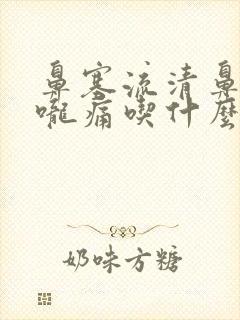 鼻塞流清鼻
嚨痛喫什麼
奶味方糖